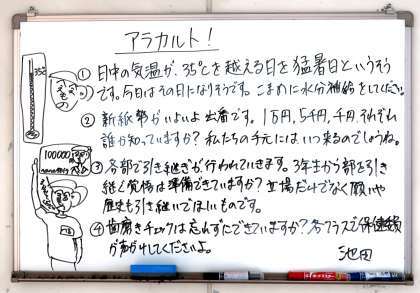 アラカルト!
35℃
① 日中の気温が、35℃を越える日を猛暑日というそう
です。今日はその日になりそうです。こまめに水分補給をしてください。
② 新紙幣がいよいよ出番です。1万円、5千円、千円、それぞれ
誰か知っていますか？私たちの手元にはいつ来るのでしょうね。
100000
③ 各部で引き継ぎが、行われていきます。3年生から部を引き
継ぐ覚悟は準備できていますか？立場だけでなく願いや
歴史も引き継いでほしいものです。
④ 歯磨きチェックは忘れずにできていますか？各クラスで保健委員
が声がけしてくださいよ。
池田